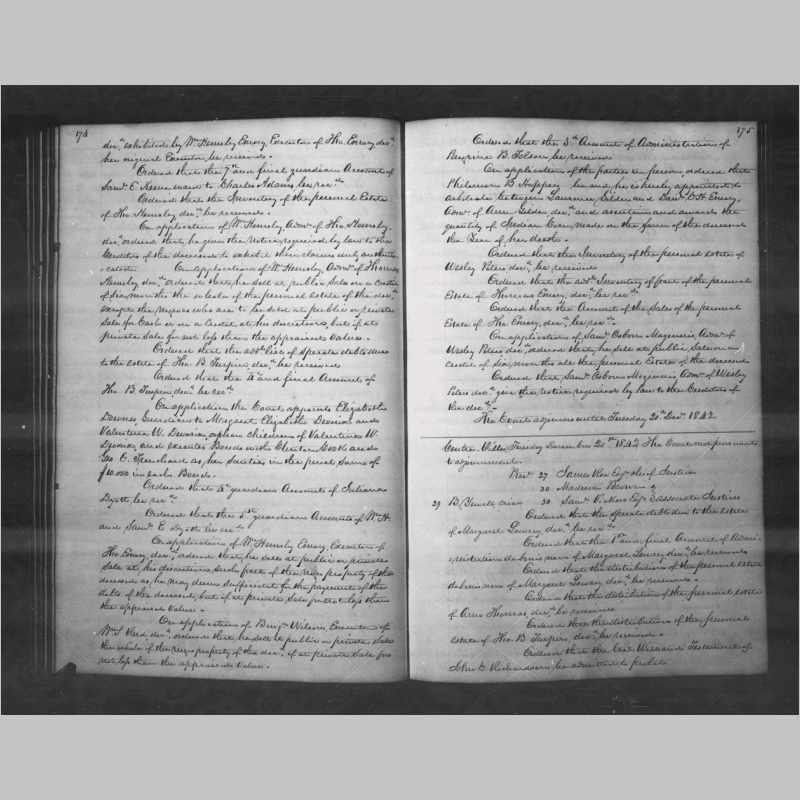 174
decd exhibited by Wm Hemsley Emory, Executor of Tho. Emory decd
her original Executor, be received.
Ordered that the 7th and final guardian Account of
Saml E. ward to Charles Adams, be recd
Ordered that the Inventory of the personal Estate
of Tho Hemsley, decd be received.
On application of W. Hemsley, Admr of Tho. Hemsley
decd ordered that, he give the notice required by law to the
Creditors of the deceased to exhibit their claims duly authenti-
cated. On application of W. Hemsley, Admr of Thomas
Hemsley decd ordered that, he sell at public Sale on a Credit
of six months the whole of the personal estate of the decd
except the negroes who are to be sold at public or private
Sale for Cash or on a Credit at his discretion, but if at
private Sale for not less than the appraised value.
Ordered that the addl list of Sperate debts due
to the estate of Tho. B. Turpin, decd be received
Ordered that the and final Account of
Tho. B. Turpin, decd be recd
On application the Court appoints Elizabeth
Downes, Guardian to Margaret Elizabeth Dennis and
Valentine W. Dennis, orphan children of Valentine W.
Dennis, and executes Bonds with Clinton Cook and
Geo C. Trenchard as her Sureties in the penal Sums of
$10.000 in each Bond.
Ordered that guardian Account of Juliana
be recd
Ordered that the guardian Accounts of Wm H.
and Saml E. be recd
On application of Wm Hemsley Emory, Executor of
Tho. Emory decd, ordered that, he sell at public or private
Sale at his discretion, such part of the negro property of the
deceased as, he may deem sufficient for the payment of the
debts of the deceased, but if at private Sale, for not less than
the appraised value.
On application of Benjn Wilson, Executor of
Wm decd, ordered that, he sell at public or private Sale
the whole of the negro property of the decd, if at private Sale for
not less than the appraised value.
175
Ordered that the 3d Account of Administration of
B. Tolson, be received
On application of the parties in person, ordered that
Philemon B. Hopper be and he is hereby appointed to
arbitrate between Laurence Elder and Saml W. H. Emory,
Admr of Ann Elder, decd, and ascertain and award the
quantity of Indian Corn, made on the farm of the deceased
the Year of her death.
Ordered that the Inventory of the personal estate of
Wesley Peters decd, be received
Ordered that the addl Inventory of part of the personal
Estate of Thomas Emory, decd, be recd
Ordered that the Account of the Sales of the personal
Estate of Tho. Emory, decd, be recd
On application of Saml Osborn Maginnis, Admr of
Wesley Peters decd, ordered that, he sell at public Sale on a
credit of six months all the personal Estate of the deceased
Ordered that Saml Osborn Maginnis, Admr of Wesley
Peters decd, give the notice required by law to the Creditors of
the decd.
The Court adjourns until Tuesday 20th Decr 1842
Centre Ville, Tuesday December 20th 1842. The Court met pursuant
to adjournment.
Prest 27 James Roe Esqr Chief Justice
30 Madison Brown
30 Saml Esqr Associate Justices
29 B.
Ordered that the Sperate debts due to the estate
of Margaret Lowrey, decd, be recd
Ordered that the 1st and final Account of Admi-
nistration de bonis non of Margaret Lowrey, decd, be received
Ordered that the distribution of the personal estate
de bonis non of Margaret Lowrey decd, be received.
Ordered that the distribution of the personal estate
of Ann Thomas, decd, be received
Ordered that the distribution of the personal
estate of Tho. B. Turpin, decd, be received.
Ordered that the last Will and Testament of
John C. Richardson, be admitted probate